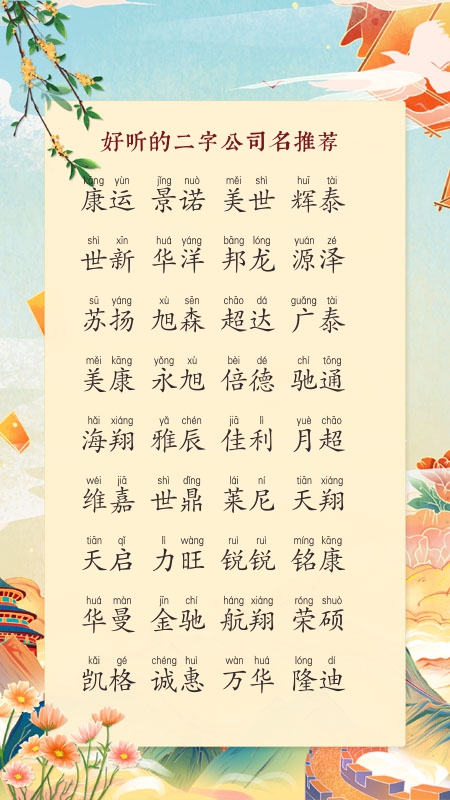 好听的二字公司名推荐
kāng yùn jǐng nuò měi shì huī tài
康运 景诺 美世 辉泰
shì xīn huá yáng bāng lóng yuán zé
世新 华洋 邦龙 源泽
sū yáng xù sēn chāo dá guǎng tài
苏扬 旭森 超达 广泰
měi kāng yǒng xù bèi dé chí tōng
美康 永旭 倍德 驰通
hǎi xiáng yǎ chén jiā lì yuè chāo
海翔 雅辰 佳利 月超
wéi jiā shì dǐng lái ní tiān xiáng
维嘉 世鼎 莱尼 天翔
tiān qǐ lì wàng ruì ruì míng kāng
天启 力旺 锐锐 铭康
huá màn jīn chí háng xiáng róng shuò
华曼 金驰 航翔 荣硕
kǎi gé chéng huì wàn huá lóng dí
凯格 诚惠 万华 隆迪